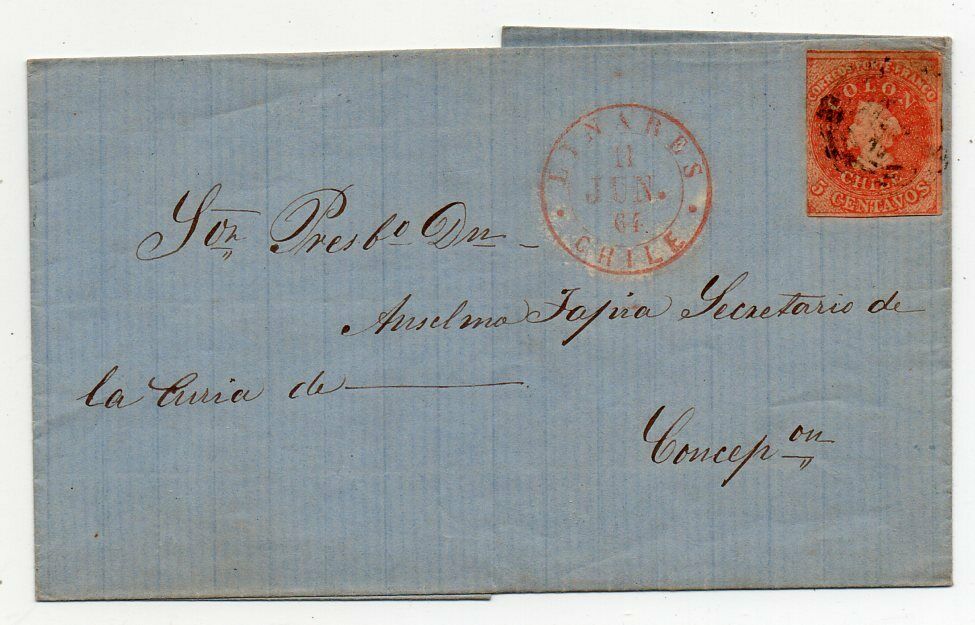 CORREOS PORTE FRANCO
COLON
CHILE
5 CENTAVOS
LINARES
11
JUN.
64.
CHILE
Sor Presbo Dn
Anselmo Tapia Secretario de
la Curia de
Concepon